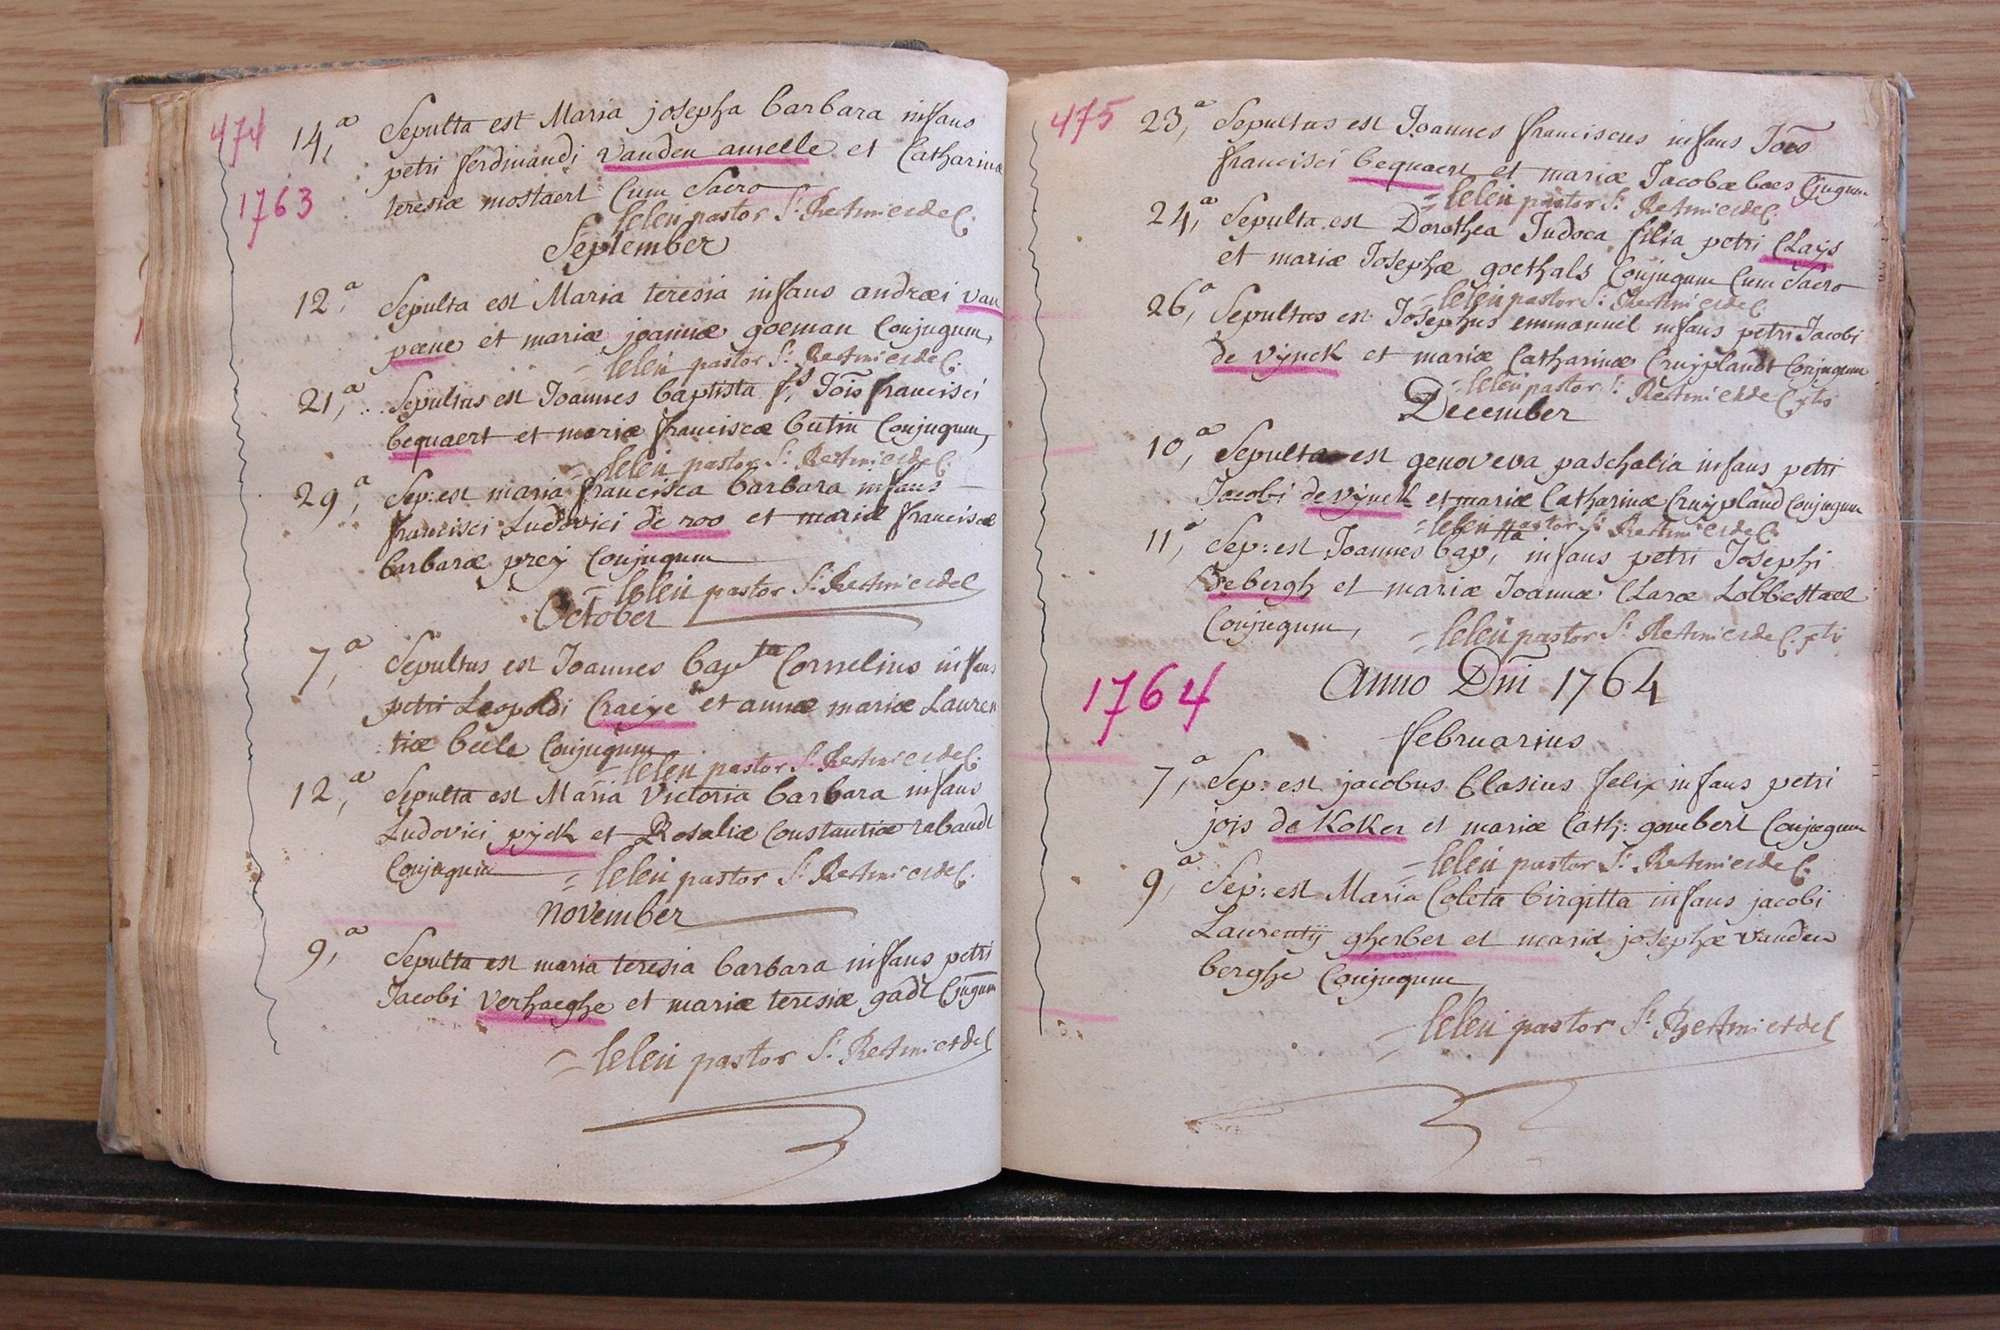 474
1763
14,a Sepulta est Maria josepha barbara infans
petri ferdinandi vanden amelle et Catharinæ
teresiæ mostaert Cum Sacro
lelen pastor
September
12,a Sepulta est Maria teresia infans andræi van
pœne et mariæ joannæ goeman Conjugum,
= lelen pastor
21,a Sepultus est Joannes baptista fs Jois francisci
bequaert et mariæ franciscæ butin Conjugum,
= lelen pastor
29,a Sep: est maria francisca barbara infans
francisci Ludovici de roo et mariæ franciscæ
barbaræ prey Conjugum
= lelen pastor
October
7,a Sepultus est Joannes bapta Cornelius infans
petri Leopoldi Craeye et annæ mariæ Lauren
tiæ beele Conjugum
= lelen pastor
12,a Sepulta est Maria Victoria barbara infans
Ludovici pyck et Rosaliæ Constantiæ rabaudt
Conjugum = lelen pastor
November
9,a Sepulta est maria teresia barbara infans petri
Jacobi verhaeghe et mariæ teresiæ gadt Cjugum
= lelen pastor
475
23,a Sepultus est Joannes franciscus infans Jois
francisci bequaert et mariæ Jacobæ baes Cjugum
= lelen pastor
24,a Sepulta est Dorothea Judoca filia petri Clays
et mariæ Josephæ goethals Conjugum Cum Sacro
= lelen pastor
26,a Sepultus est Josephus emmanuel infans petri Jacobi
de vynck et mariæ Catharinæ Cruyplandt Conjugum
= lelen pastor
December
10,a Sepulta est genoveva paschalia infans petri
Jacobi de vynck et mariæ Catharinæ Cruypland Conjugum
= lelen pastor
11,a Sep: est Joannes bap,tta infans petri Josephi
Debergh et mariæ Joannæ Claræ Lobbestael
Conjugum, = lelen pastor
1764
Anno Dni 1764
februarius
7,a Sep: est jacobus blasius felix infans petri
jois de Koker et mariæ Cath: gombert Conjugum
= lelen pastor
9,a Sep: est Maria Coleta birgitta infans jacobi
Laurentij gherber et mariæ josephæ vanden
berghe Conjugum,
= lelen pastor